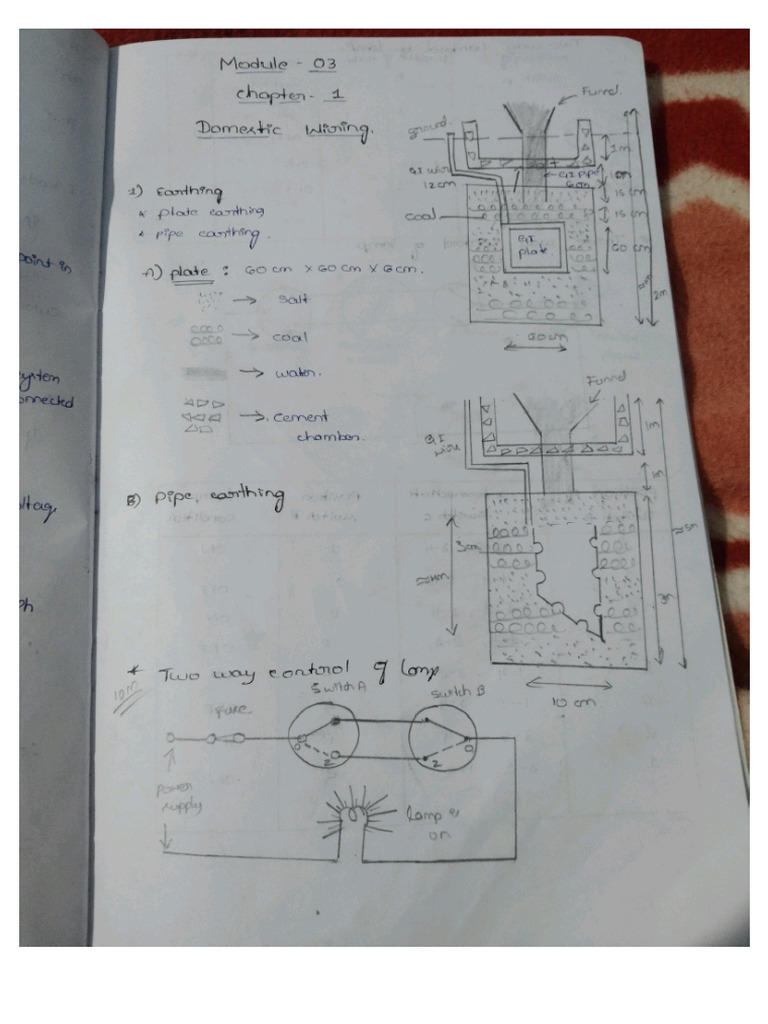 Module - 03
Chapter - 1
Domestic Wiring.
1) Earthing
* plate earthing
* pipe earthing.
A) plate : 60 cm x 60 cm x 6 cm.
→ Salt
→ coal
→ water.
→ cement
chamber.
Funnel
ground
GI wire
12 cm
1m
GI pipe
15 cm
15 cm
coal
60 cm
GI
plate
2m
90 cm
B) pipe earthing
Funnel
GI
wire
3cm
10 cm
* Two way control of lamp
10M
Switch A
Switch B
Fuse
0
2
2
0
power
supply
lamp is
on
point in
system
onnected
oltage
ph